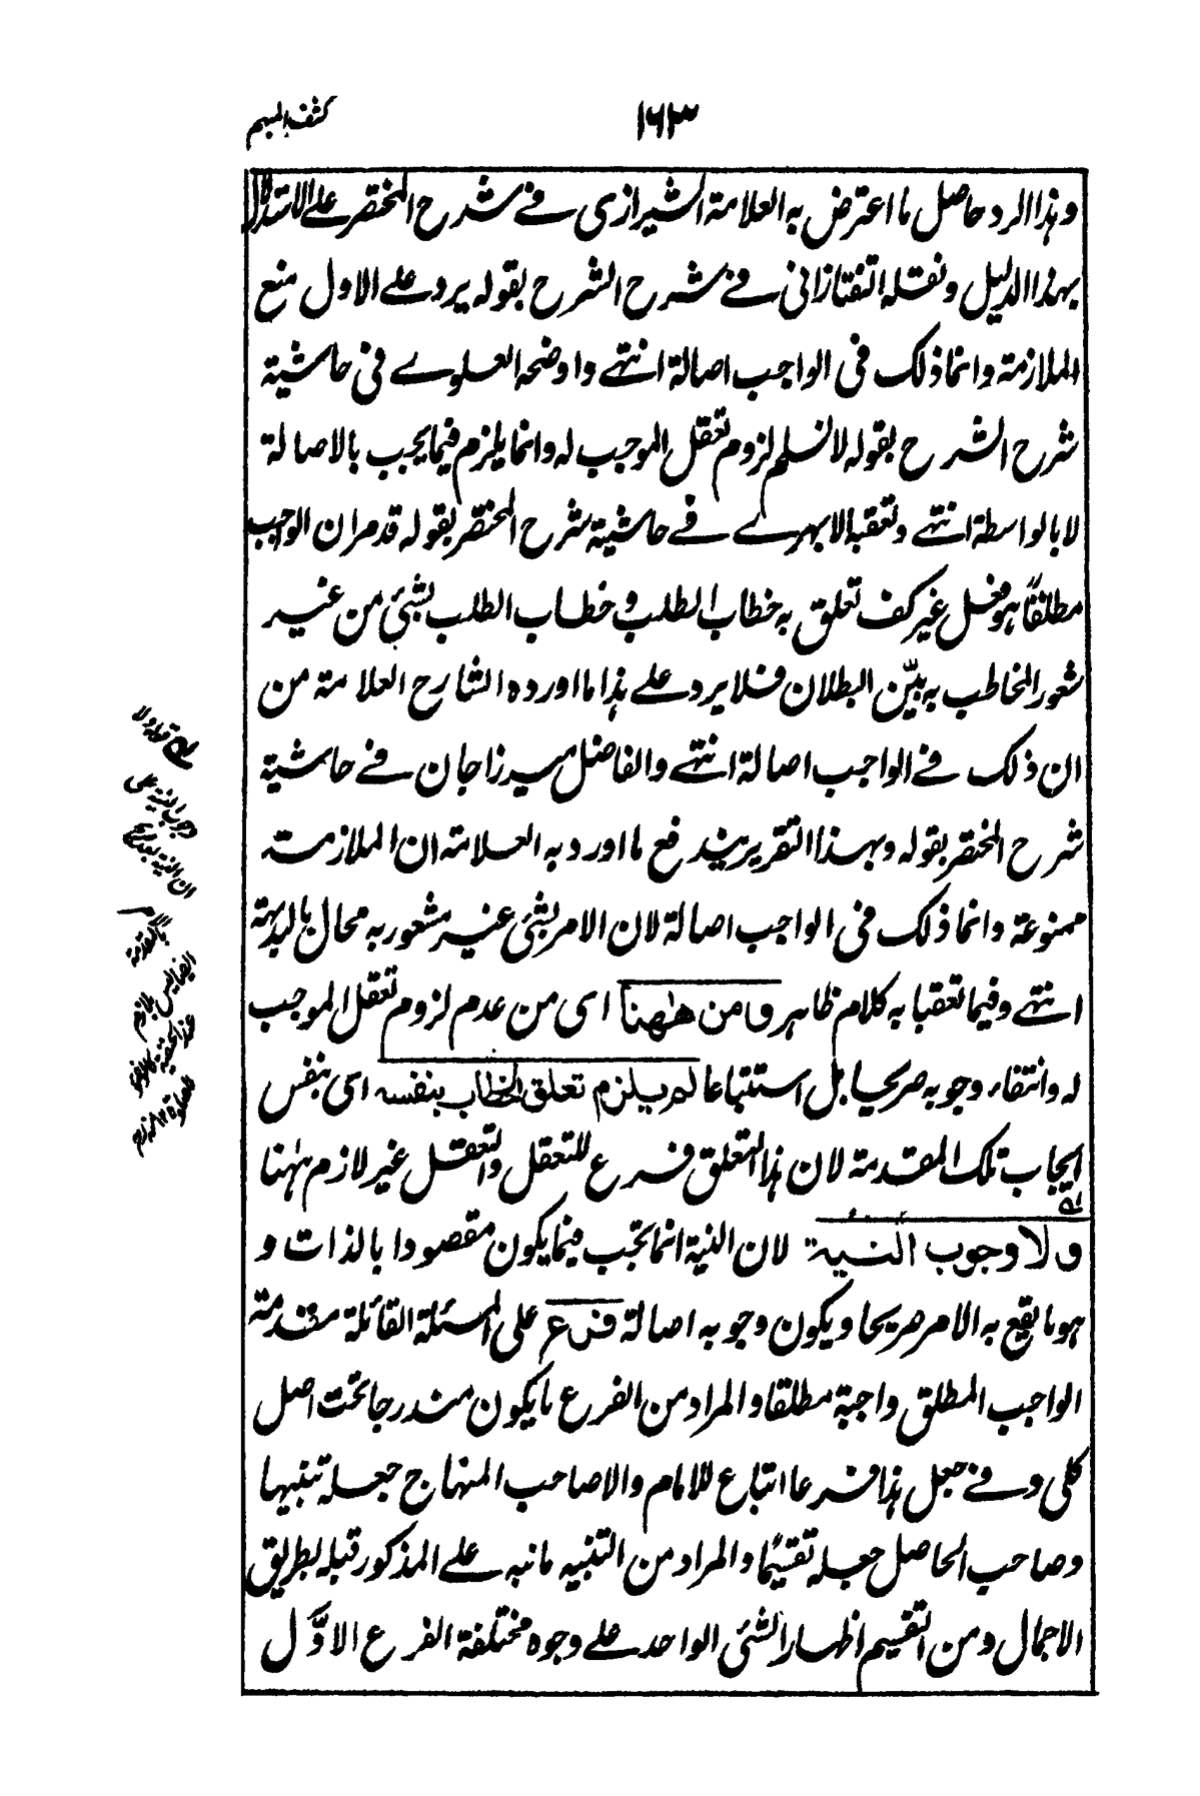 ١٦٣
كشف المبهم
وهذا الرد حاصل ما اعترض به العلامة الشيرازى فے شرح المختصر علے الاستدلال
بهذا الدليل ونقله التفتازانى فے شرح الشرح بقوله يرد علے الاول منع
الملازمة وانما ذلك فى الواجب اصالة انتهے واوضحه العلوے فى حاشية
شرح الشرح بقوله لا نسلم لزوم تعقل الموجب له وانما يلزم فيما يجب بالاصالة
لا بالواسطة انتهے وتعقبه الابهرے فے حاشية شرح المختصر بقوله قد مر ان الواجب
مطلقًا هو فعل غير كف تعلق به خطاب الطلب و خطاب الطلب بشئ من غير
شعور المخاطب به بيّن البطلان فلا يرد علے هذا ما اورده الشارح العلامة من
ان ذلك فے الواجب اصالة انتهے والفاضل ميرزاجان فے حاشية
شرح المختصر بقوله وبهذا التقرير يندفع ما اورد به العلامة ان الملازمة
ممنوعة وانما ذلك فى الواجب اصالة لان الامر بشئ غير مشعور به محال بالبديهة
انتهے وفيما تعقبا به كلام ظاهر ومن هٰهنا اى من عدم لزوم تعقل الموجب
له وانتفاء وجوبه صريحا بل استتباعا لم يلزم تعلق الخطاب بنفسه اى بنفس
ايجاب تلك المقدمة لان هذا التعلق فرع للتعقل والتعقل غير لازم هٰهنا
ولا وجوب النية لان النية انما تجب فيما يكون مقصودا بالذات و
هو ما يقع به الامر صريحا ويكون وجوبه اصالة فرع على المسئلة القائلة مقدمة
الواجب المطلق واجبة مطلقا والمراد من الفرع ما يكون مندرجا تحت اصل
كلى وفے جعل هذا فرعا اتباع للامام والا صاحب المنهاج جعله تنبيها
وصاحب الحاصل جعله تقسيمًا والمراد من التنبيه ما نبه علے المذكور قبله بطريق
الاجمال ومن التقسيم اظهار الشئ الواحد علے وجوه مختلفة الفرع الاوّل
قوله ولا
وجوب النية على
ان النية
بالمقدمة
ايضا ليس بلازم
عند الحنفية كالوضوء